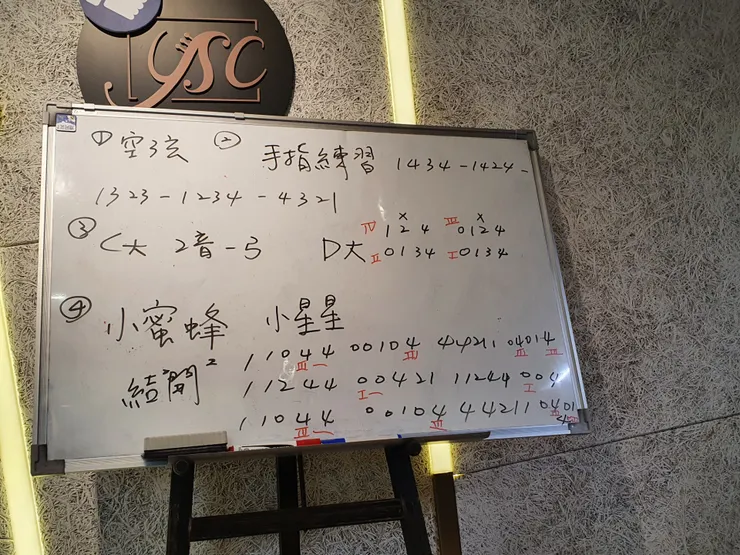 YSC
① 空弦 ② 手指練習 1434-1424-
1323-1234-4321
③ C大 2音-弓 D大 IV 1 2 4 III 0 1 2 4
x x
II 0 1 3 4 I 0 1 3 4
④ 小蜜蜂 小星星
1 1 0 4 4 0 0 1 0 4 4 4 2 1 1 0 4 0 1 4
III III III II
1 1 2 4 4 0 0 4 2 1 1 1 2 4 4 0 0 4
I I
1 1 0 4 4 0 0 1 0 4 4 4 2 1 1 0 4 0 1
III III